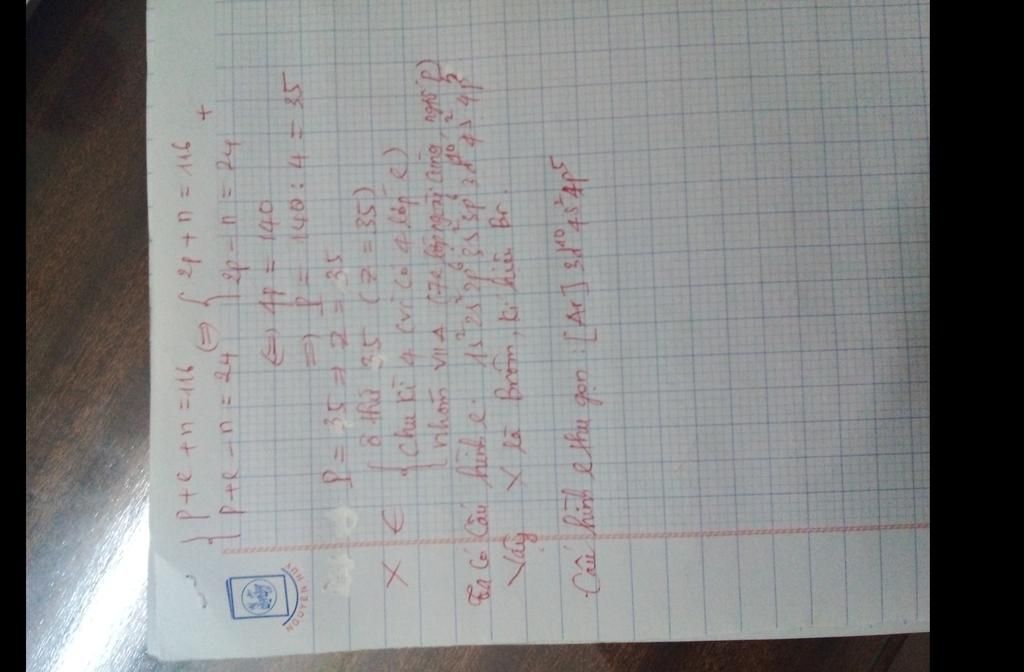 { p + e + n = 116 (=) { 2p + n = 116
{ p + e - n = 24 { 2p - n = 24 +
(=) 4p = 140
=) p = 140 : 4 = 35
p = 35 => Z = 35
X ∈ { ô thứ 35 (Z = 35)
{ chu kì 4 (vì có 4 lớp e)
{ nhóm VIIA (7e lớp ngoài cùng, ng.tố p)
Ta có cấu hình e: 1s² 2s² 2p⁶ 3s² 3p⁶ 3d¹⁰ 4s² 4p⁵
Vậy X là Brom, kí hiệu Br.
Cấu hình e thu gọn: [Ar] 3d¹⁰ 4s² 4p⁵
NGUYEN HUY